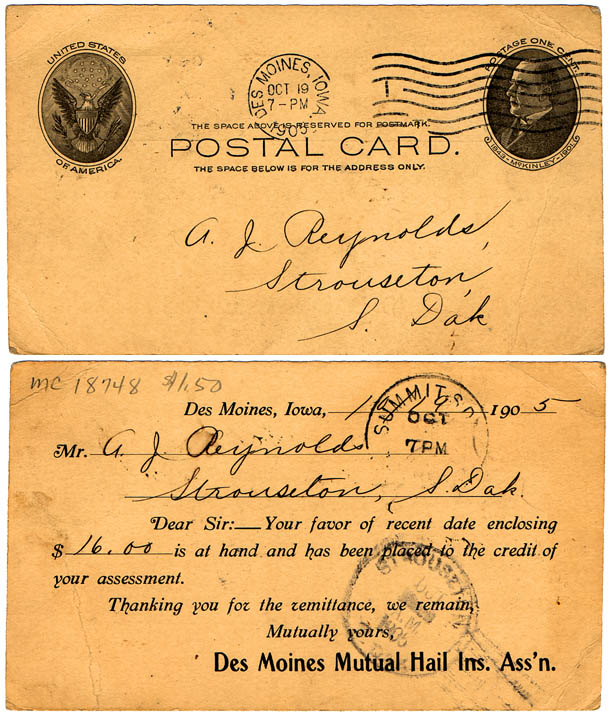 UNITED STATES
OF AMERICA.
DES MOINES, IOWA
OCT 19
7-PM
1905
POSTAGE ONE CENT
1843-McKINLEY-1901
THE SPACE ABOVE IS RESERVED FOR POSTMARK.
POSTAL CARD.
THE SPACE BELOW IS FOR THE ADDRESS ONLY.
A. J. Reynolds,
Strouseton,
S. Dak
MC 18748 $1.50
Des Moines, Iowa, 1905
SUMMIT, S.D.
OCT
7PM
Mr. A. J. Reynolds
Strouseton, S. Dak.
Dear Sir:— Your favor of recent date enclosing
$ 16.00 is at hand and has been placed to the credit of
your assessment.
Thanking you for the remittance, we remain,
Mutually yours,
Des Moines Mutual Hail Ins. Ass'n.
STROUSETON
OCT